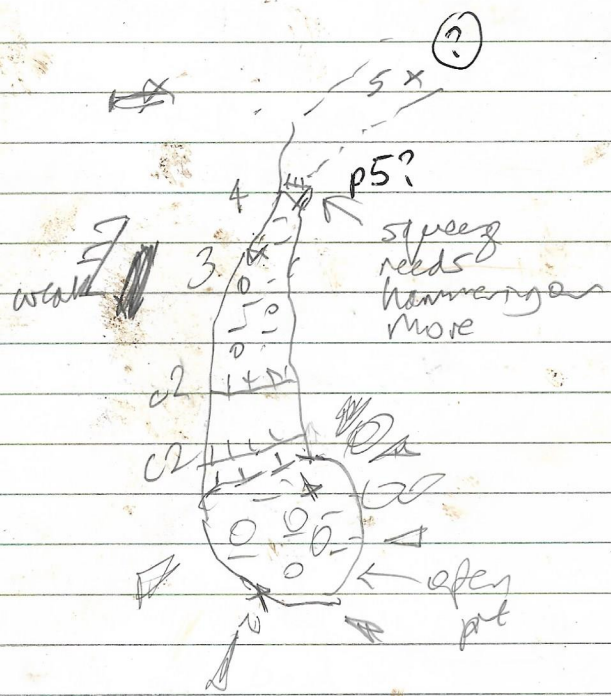 ?
5 x
4
p5?
3
squeeze
needs
hammering or
more
weak
c2
c2
open
pit
2